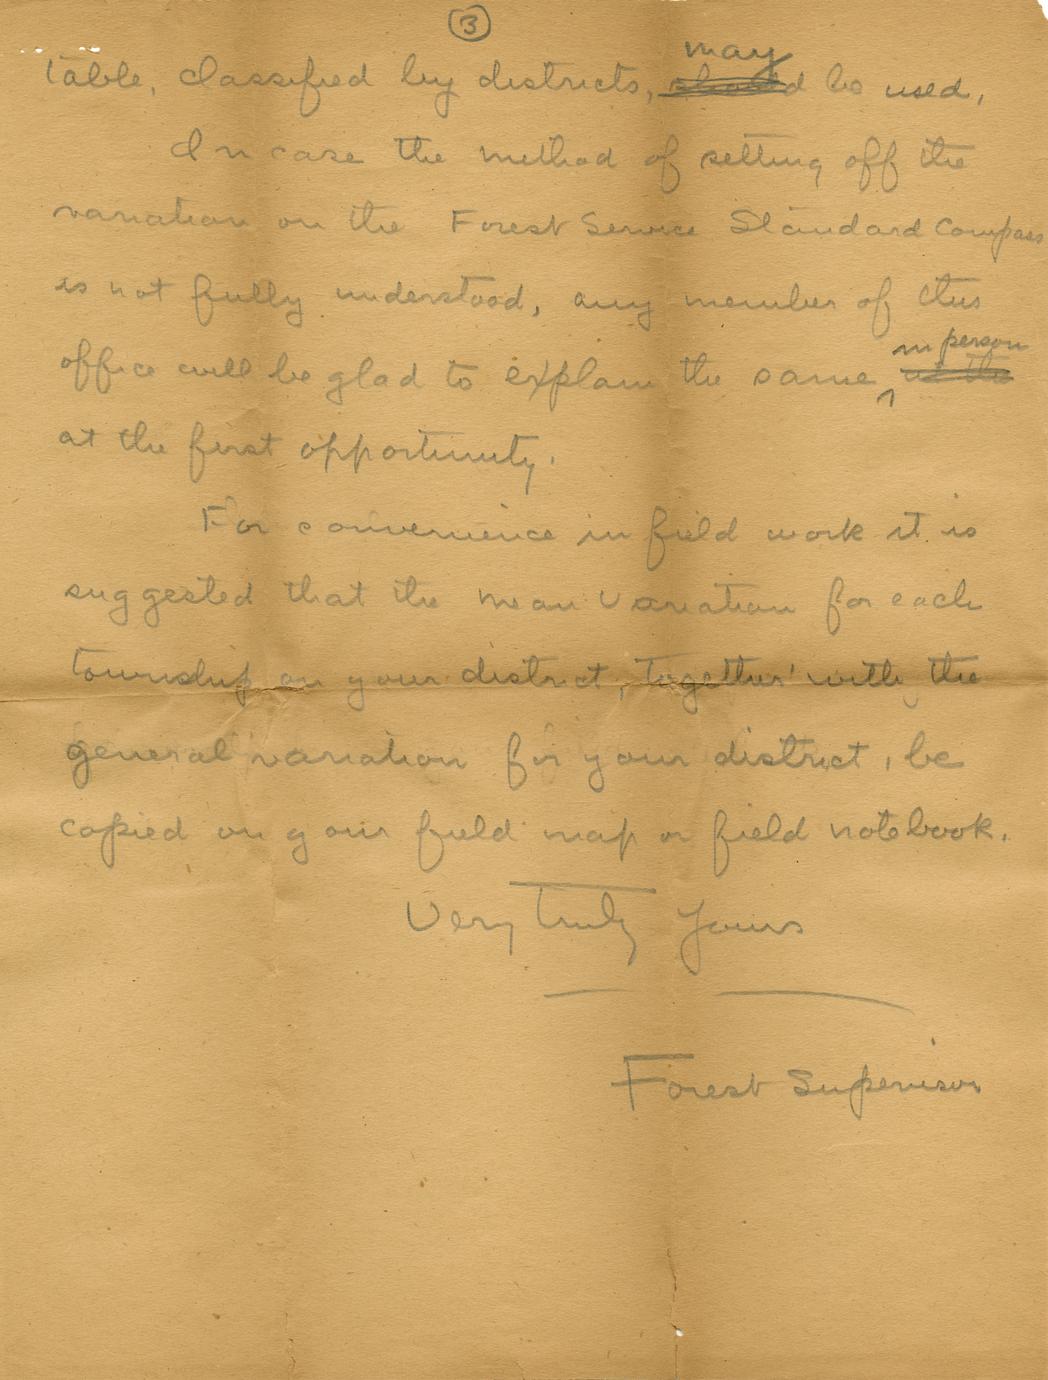 3
may
table, classified by districts, should be used,
In case the method of setting off the
variation on the Forest Service Standard Compass
is not fully understood, any member of this
in person
office will be glad to explain the same, at the
at the first opportunity.
For convenience in field work it is
suggested that the mean variation for each
township on your district, together with the
general variation for your district, be
copied on your field map or field notebook.
Very Truly Yours
Forest Supervisor